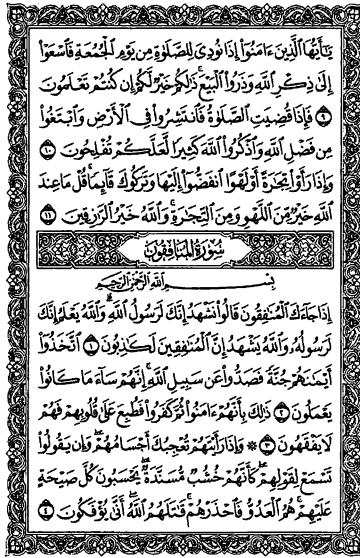 يَٰٓأَيُّهَا ٱلَّذِينَ ءَامَنُوٓا۟ إِذَا نُودِىَ لِلصَّلَوٰةِ مِن يَوْمِ ٱلْجُمُعَةِ فَٱسْعَوْا۟
إِلَىٰ ذِكْرِ ٱللَّهِ وَذَرُوا۟ ٱلْبَيْعَ ۚ ذَٰلِكُمْ خَيْرٌ لَّكُمْ إِن كُنتُمْ تَعْلَمُونَ
٩ فَإِذَا قُضِيَتِ ٱلصَّلَوٰةُ فَٱنتَشِرُوا۟ فِى ٱلْأَرْضِ وَٱبْتَغُوا۟
مِن فَضْلِ ٱللَّهِ وَٱذْكُرُوا۟ ٱللَّهَ كَثِيرًا لَّعَلَّكُمْ تُفْلِحُونَ ١٠
وَإِذَا رَأَوْا۟ تِجَٰرَةً أَوْ لَهْوًا ٱنفَضُّوٓا۟ إِلَيْهَا وَتَرَكُوكَ قَآئِمًا ۚ قُلْ مَا عِندَ
ٱللَّهِ خَيْرٌ مِّنَ ٱللَّهْوِ وَمِنَ ٱلتِّجَٰرَةِ ۚ وَٱللَّهُ خَيْرُ ٱلرَّٰزِقِينَ ١١
سُورَةُ المُنَافِقُون
بِسْمِ ٱللَّهِ ٱلرَّحْمَٰنِ ٱلرَّحِيمِ
إِذَا جَآءَكَ ٱلْمُنَٰفِقُونَ قَالُوا۟ نَشْهَدُ إِنَّكَ لَرَسُولُ ٱللَّهِ ۗ وَٱللَّهُ يَعْلَمُ إِنَّكَ
لَرَسُولُهُۥ وَٱللَّهُ يَشْهَدُ إِنَّ ٱلْمُنَٰفِقِينَ لَكَٰذِبُونَ ١ ٱتَّخَذُوٓا۟
أَيْمَٰنَهُمْ جُنَّةً فَصَدُّوا۟ عَن سَبِيلِ ٱللَّهِ ۚ إِنَّهُمْ سَآءَ مَا كَانُوا۟
يَعْمَلُونَ ٢ ذَٰلِكَ بِأَنَّهُمْ ءَامَنُوا۟ ثُمَّ كَفَرُوا۟ فَطُبِعَ عَلَىٰ قُلُوبِهِمْ فَهُمْ
لَا يَفْقَهُونَ ٣ ۞ وَإِذَا رَأَيْتَهُمْ تُعْجِبُكَ أَجْسَامُهُمْ ۖ وَإِن يَقُولُوا۟
تَسْمَعْ لِقَوْلِهِمْ ۖ كَأَنَّهُمْ خُشُبٌ مُّسَنَّدَةٌ ۖ يَحْسَبُونَ كُلَّ صَيْحَةٍ
عَلَيْهِمْ ۚ هُمُ ٱلْعَدُوُّ فَٱحْذَرْهُمْ ۚ قَٰتَلَهُمُ ٱللَّهُ ۖ أَنَّىٰ يُؤْفَكُونَ ٤